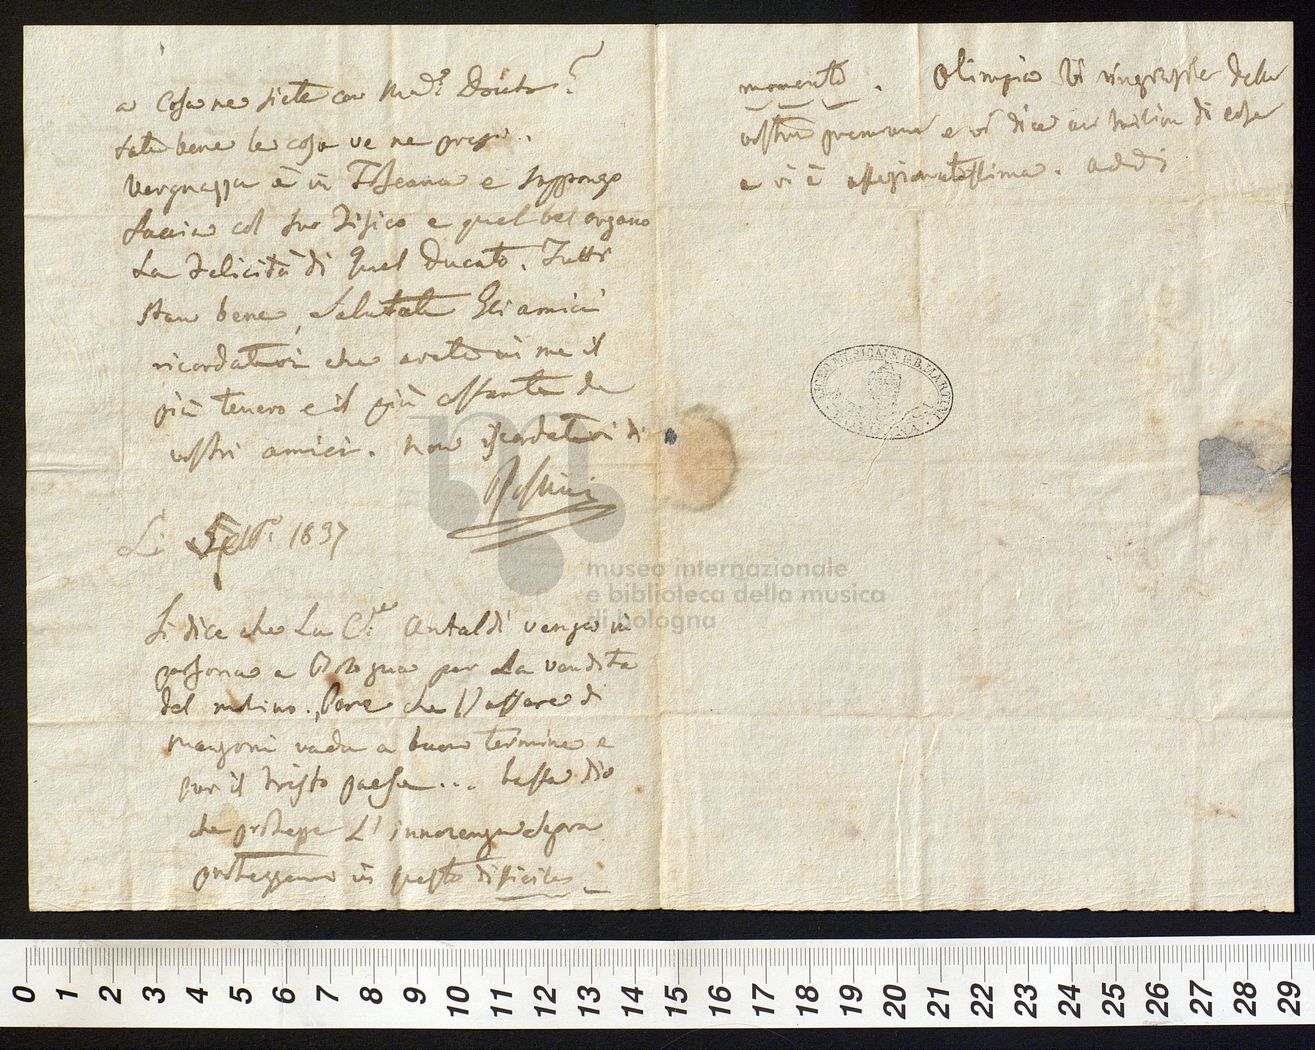 a Cosa ne siete con Mad.e
fate bene la cosa ve ne prego.
Vergnaffa è in Toscana e suppongo
faccia col suo Fisico e quel bel organo
La Felicità di quel Ducato. Tutti
stan bene, Salutate Gli amici
ricordatevi che avete in me il
più tenero e il più costante de
vostri amici. non iscordatevi di
Rossini
Li Sett. 1837
Si dice che La C.sa Antaldi venga in
persona a Bologna per La vendita
del molino. Pare che l'affare di
Manzoni vada a buon termine e
pur il tristo paese ... basta Dio
che protegge L'innocenza
proteggermi in questo difficile
momento. Olimpia vi ringrazia della
vostra premura e vi dice un milion di cose
e vi è affezionatissima. addi
LICEO MUSICALE G.B. MARTINI
BOLOGNA
museo internazionale
e biblioteca della musica
di bologna
0 1 2 3 4 5 6 7 8 9 10 11 12 13 14 15 16 17 18 19 20 21 22 23 24 25 26 27 28 29